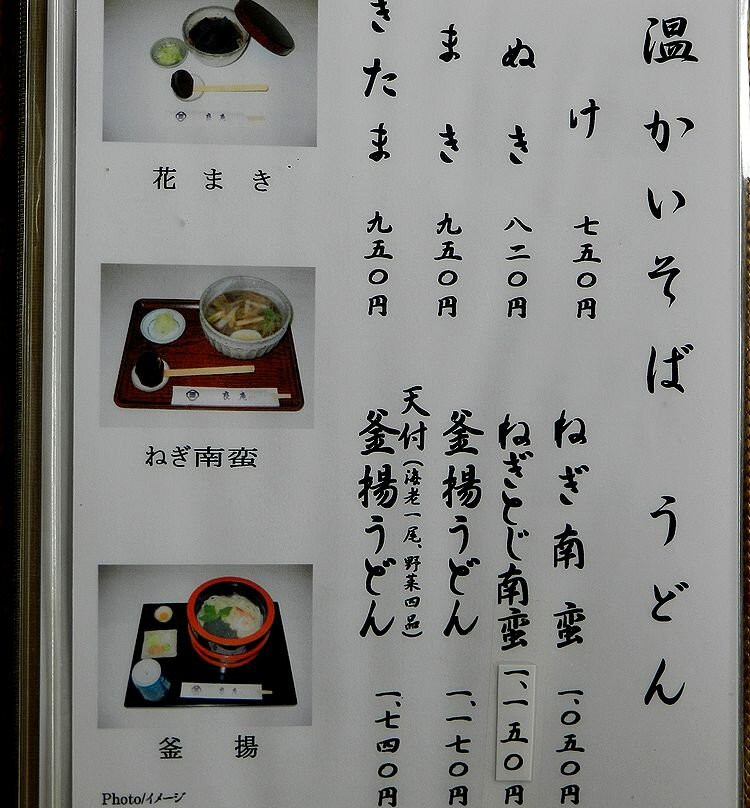 温かいそば うどん
け 七五〇円
ぬき 八二〇円
まき 九五〇円
きたま 九五〇円
ねぎ南蛮 一、〇五〇円
ねぎとじ南蛮 一、一五〇円
釜揚うどん 一、一七〇円
天付(海老一尾、野菜四品)
釜揚うどん 一、七四〇円
花まき
ねぎ南蛮
釜揚
Photo/イメージ